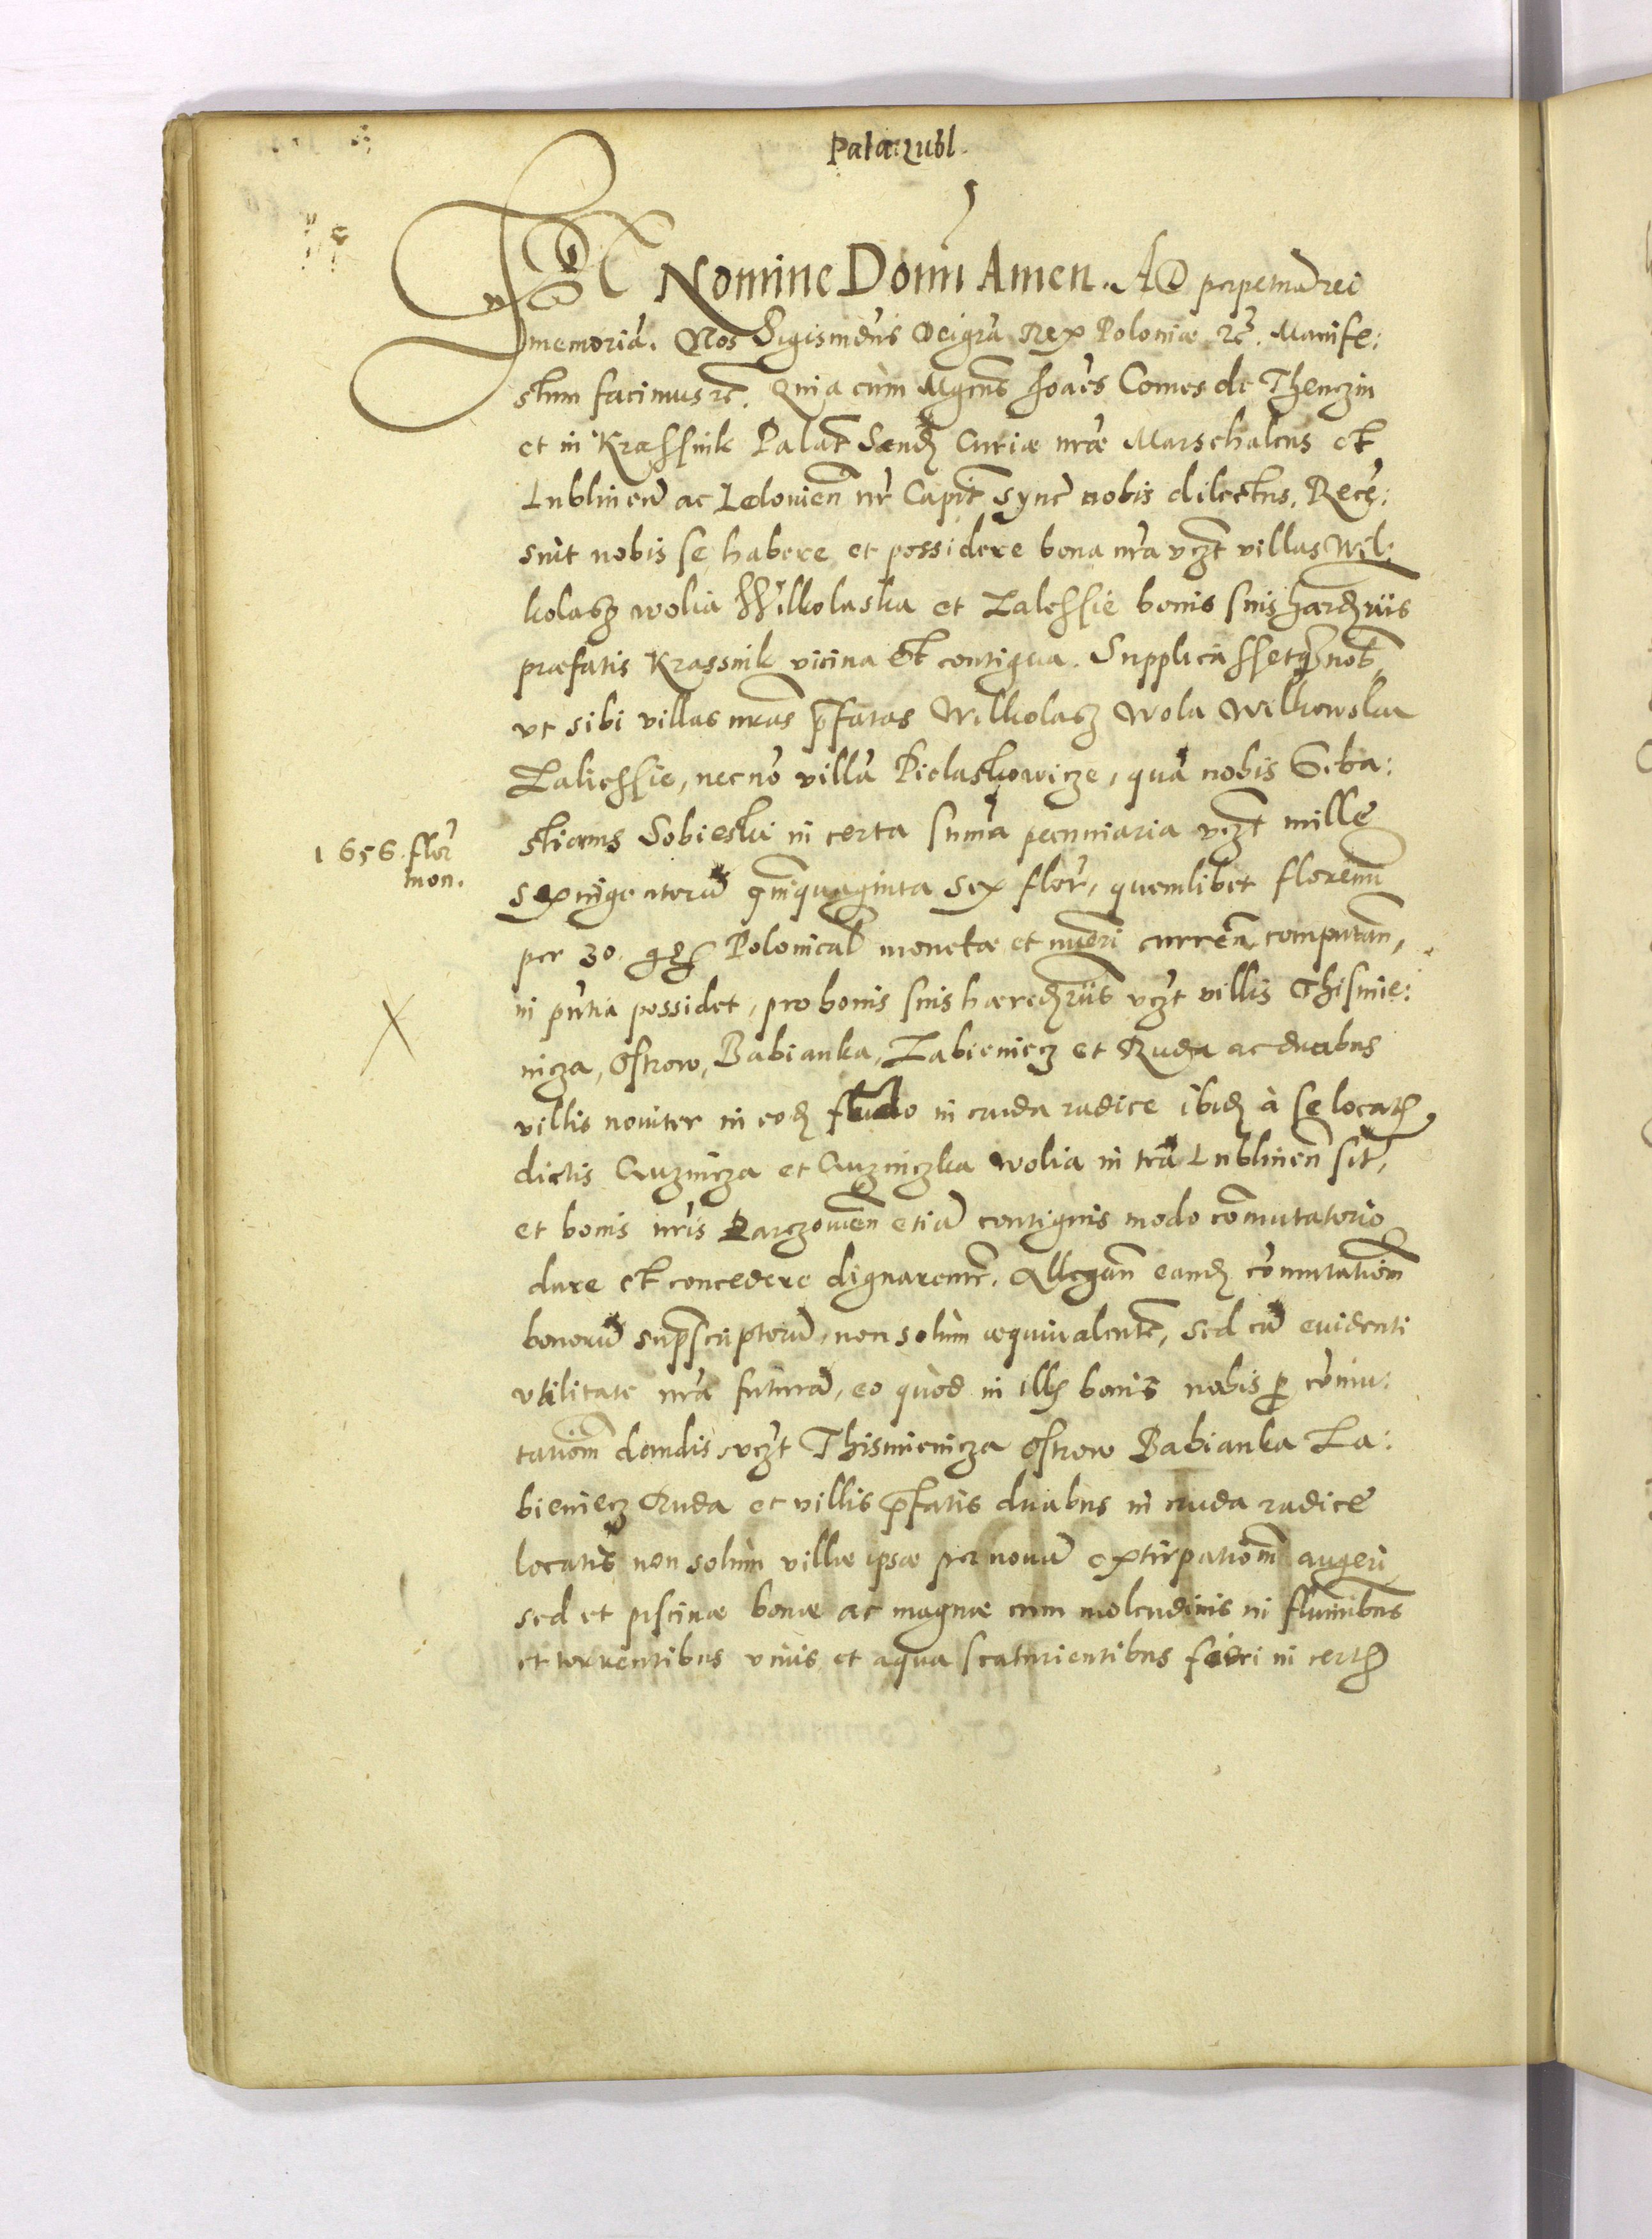 Pala: Lubl.
IN Nomine Domi Amen. AD perpetuā rei
memoriā. Nos Sigismdus Dei gra Rex Poloniæ etc. Manife:
stum facimus etc. Quia cum Mgcus Joaēs Comes de Thenczin
et in Krassnik Palat Send Curiæ nræ Marschalcus et
Lublinen ac Lelovien nr Capit sync nobis dilectus. Recē:
suit nobis se habere et possidere bona nra vczt villas Wil:
kolasz wolia Wilkolaska et Zalessie bonis suis hærdriis
præfatis Krassnik vicina et contigua. Supplicassetq nob
vt sibi villas nras pfatas Wilkolasz Wola Wilkowska
Zaliessie, necnō villā Pielaskowicze, quā nobis Seba:
stianus Sobieski in certa suma pecuniaria vczt mille
sexingentorū qnquaginta sex flor, quemlibet florenū
per 30. gs Polonical monetæ et nueri curren computan,
in pntia possidet, pro bonis suis hæredriis vczt villis Thismie:
nicza, Ostrow, Babianka, Labieniecz et Ruda ac duabus
villis noviter in eod fundo in cruda radice ibid à se locat
dictis Guznicza et Guzniczka wolia in trā Lublinen sit,
et bonis nris Parczowien etiā contiguis modo comutatorio
dare et concedere dignaremr. Allegan eand cōmutationm
bonorū supscriptorū, non solum æquivalente, sed cū evidenti
vtilitate nrā futurā, eo quòd in illis bonis nobis p cōmu:
tationm dandis vczt Thismienicza Ostrow Babianka La:
bieniecz Ruda et villis pfatis duabus in cruda radice
locatis non solum villæ ipsæ per novā extirpationm augeri
sed et piscinæ bonæ ac magnæ cum molendinis in fluminibus
et torrentibus vivis et aqua scaturientibus fieri in cert
1656. flor
mon.